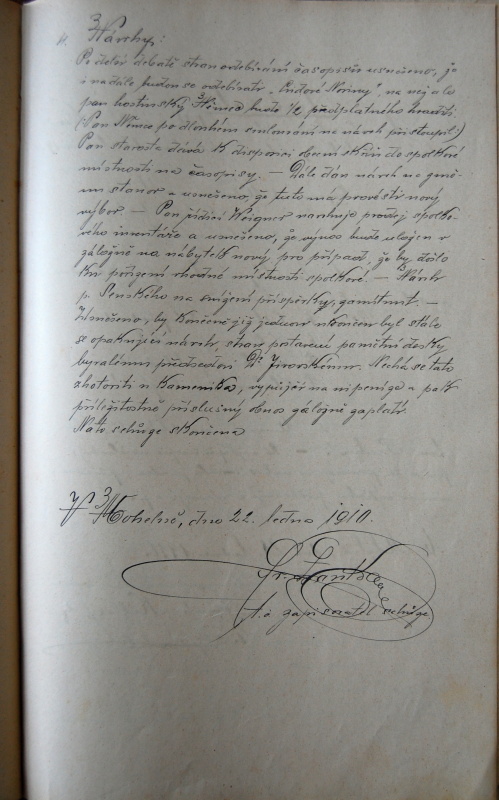 Návrhy:
Po delší debatě stran odebírání časopisů usnešeno, že
i nadále budou se odebírati „Lidové Noviny", na něj ale
pan hostinský Němec bude ½ předplatného hraditi.
(Pan Němec po dlouhém zmlouvání na návrh přistoupil.)
Pan starosta dává k disposici obecní skříň do spolkové
místnosti na časopisy. — Dále dán návrh na změ-
nu stanov a usnešeno, že tuto má provésti nový
výbor. — Pan řídící Weigner navrhuje prodej spolko-
vého inventáře a usnešeno, že výnos bude uložen v
záložně na nábytek nový pro případ, že by došlo
ku pořízení vhodné místnosti spolkové. — Návrh
p. Senského na snížení příspěvků zamítnut. —
Usnešeno, by konečně již jednou ukončen byl stále
se opakující návrh, stran postavení pamětní desky
bývalému předsedovi Dr. Jirovskému. Nechá se tato
zhotoviti u kameníka, vypůjčí na ni peníze a pak
příležitostně příslušný obnos záložně zaplatí.
Nato schůze skončena
V Mohelně, dne 22. ledna 1910.
Fr.
t. č. zapisovatel schůze